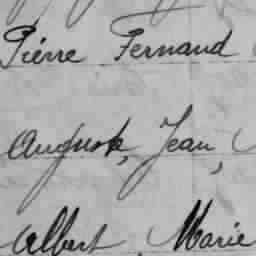 Pierre Fernand
Auguste, Jean,
Albert, Marie